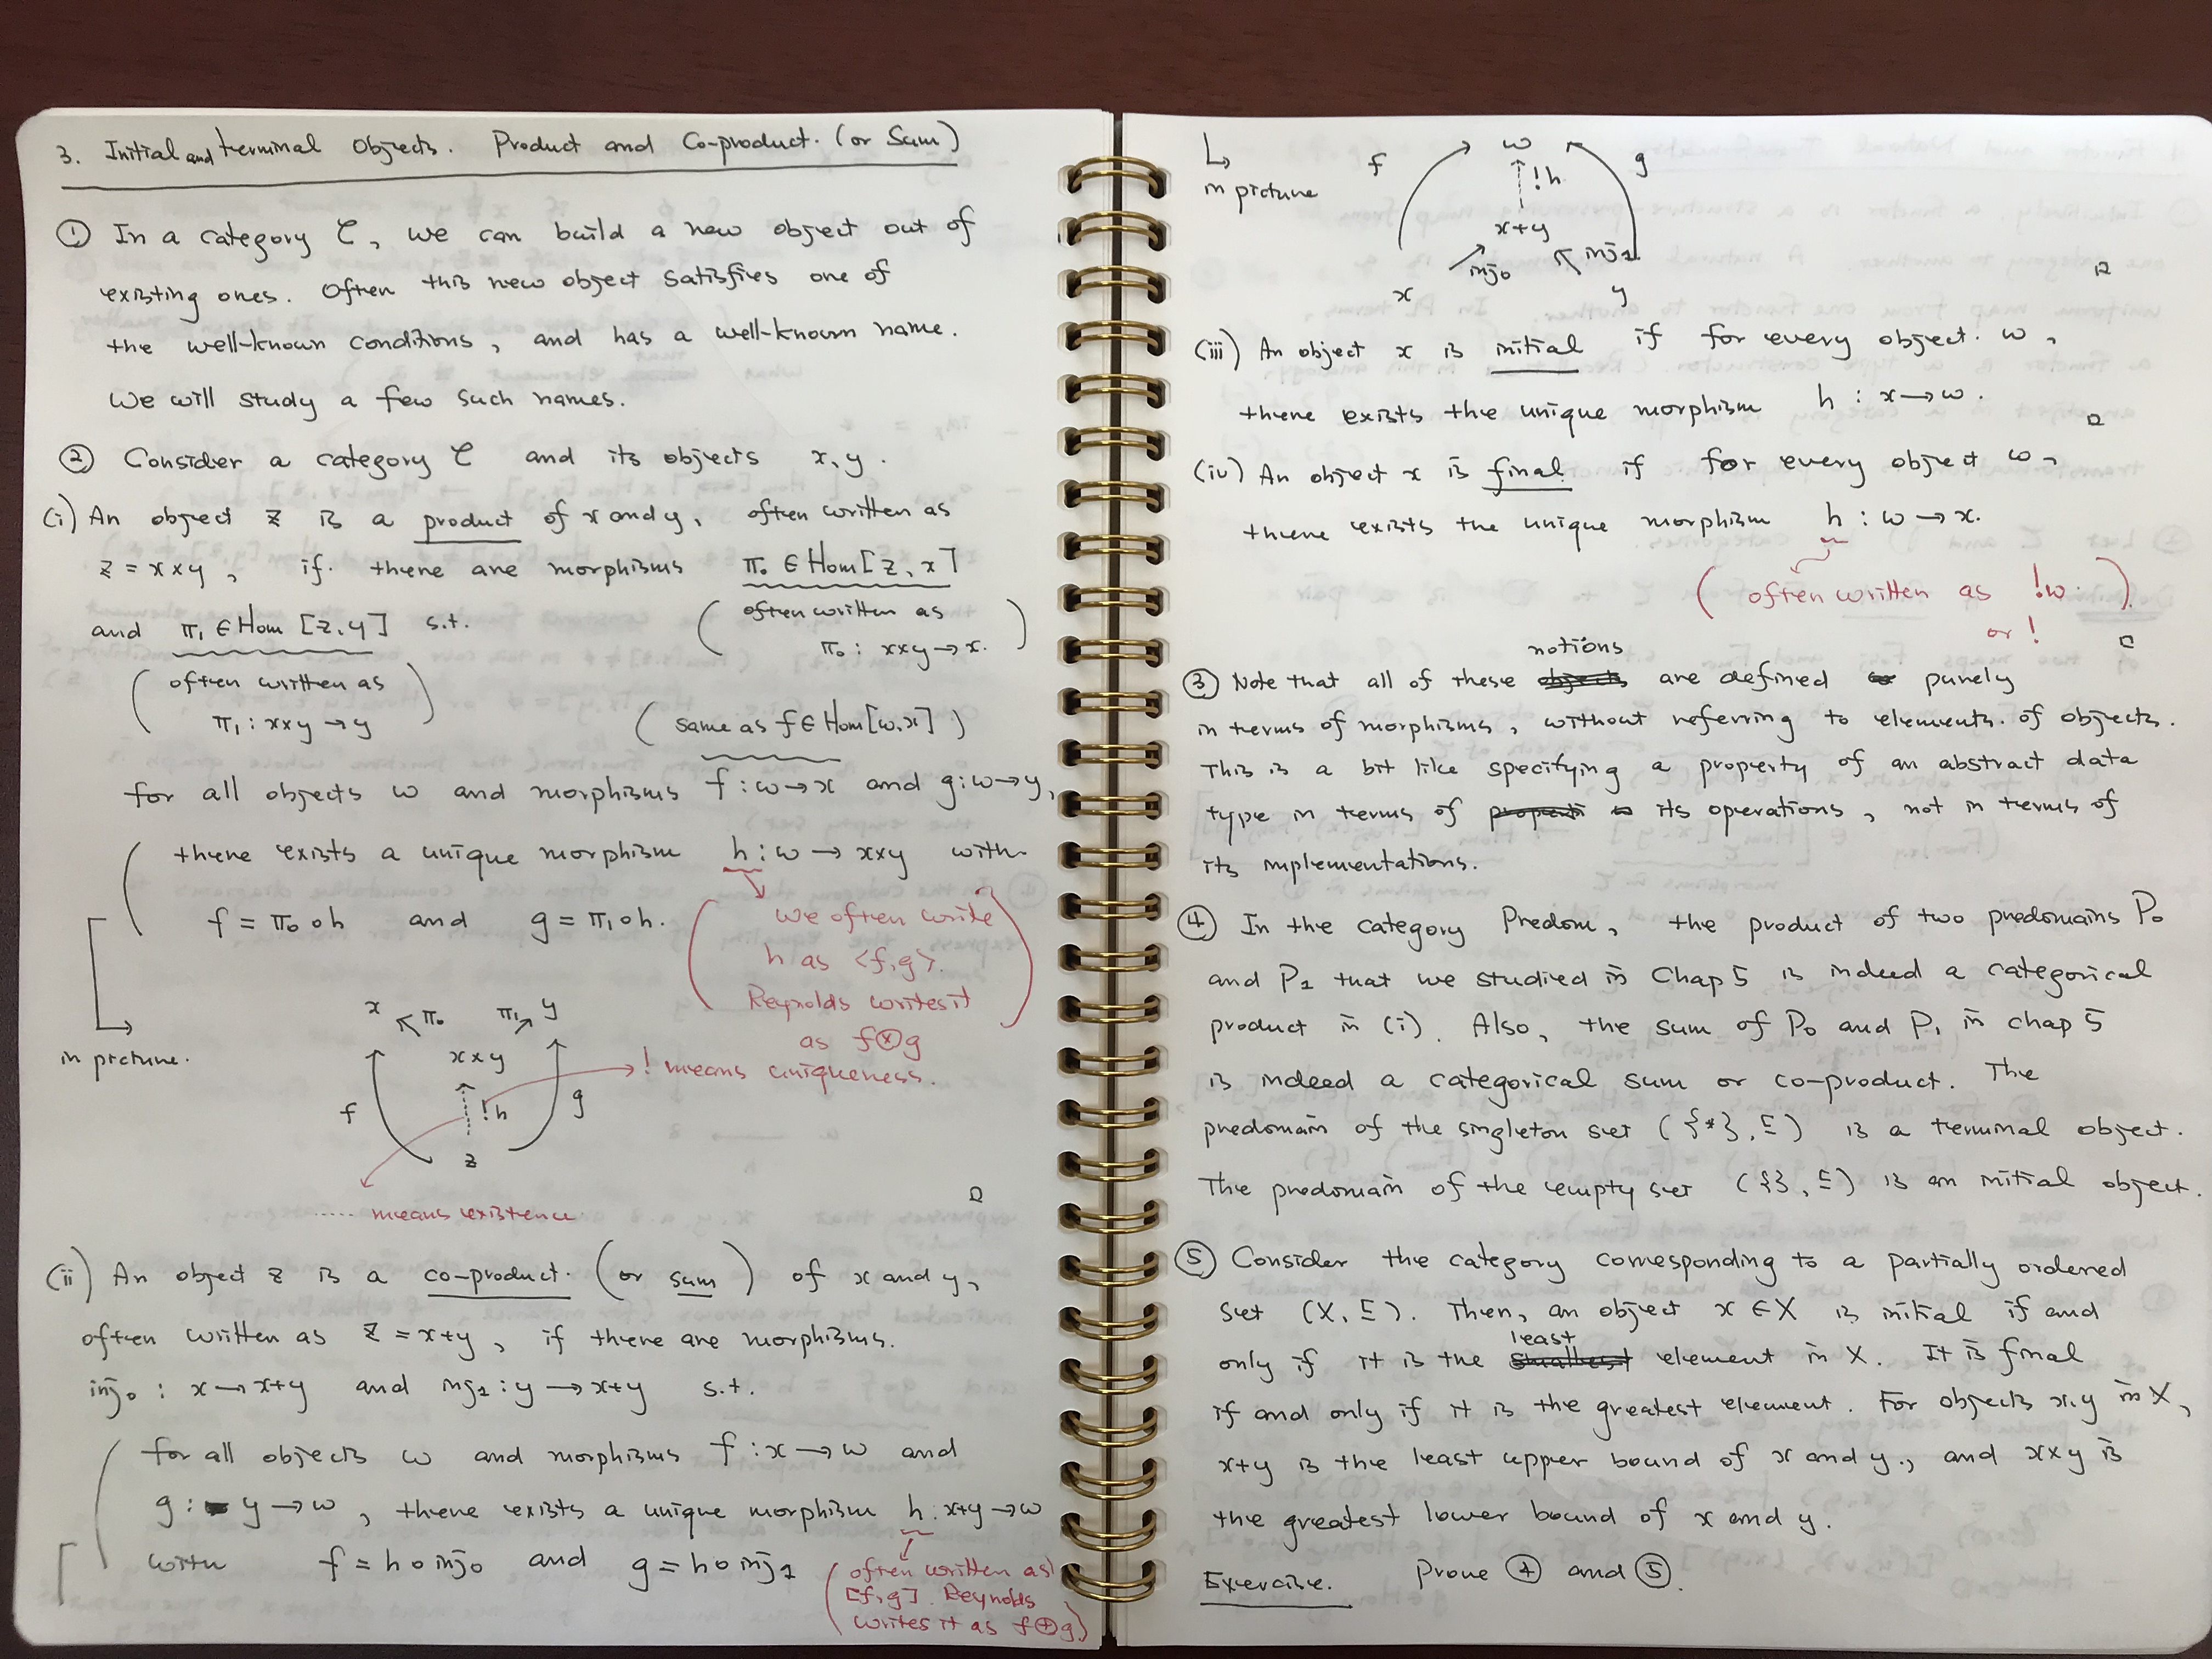 3. Initial and terminal Objects. Product and Co-product. (or Sum)
① In a category C, we can build a new object out of
existing ones. Often this new object satisfies one of
the well-known conditions, and has a well-known name.
We will study a few such names.
② Consider a category C and its objects x, y.
(i) An object z is a product of x and y, often written as
z = x×y, if there are morphisms π₀ ∈ Hom[z, x]
(often written as
π₀ : x×y → x.)
and π₁ ∈ Hom [z, y] s.t.
(often written as
π₁ : x×y → y)
(same as f ∈ Hom[w, x])
for all objects w and morphisms f : w → x and g : w → y,
there exists a unique morphism h : w → x×y with
f = π₀ ∘ h and g = π₁ ∘ h.
(we often write
h as <f, g>.
Reynolds writes it
as f⊗g)
in picture.
x π₀ π₁ y
x×y
f !h g
z
! means uniqueness.
...... means existence.
(ii) An object z is a co-product. (or sum) of x and y,
often written as z = x+y, if there are morphisms.
inj₀ : x → x+y and inj₁ : y → x+y s.t.
for all objects w and morphisms f : x → w and
g : y → w, there exists a unique morphism h : x+y → w
with f = h ∘ inj₀ and g = h ∘ inj₁
(often written as
[f, g]. Reynolds
writes it as f⊕g)
in picture
f w g
!h
x+y
inj₀ inj₁
x y
(iii) An object x is initial if for every object w,
there exists the unique morphism h : x → w.
(iv) An object x is final if for every object w,
there exists the unique morphism h : w → x.
(often written as !w.
or !)
notions
③ Note that all of these objects are defined purely
in terms of morphisms, without referring to elements of objects.
This is a bit like specifying a property of an abstract data
type in terms of its operations, not in terms of
its implementations.
④ In the category Predom, the product of two predomains P₀
and P₁ that we studied in Chap 5 is indeed a categorical
product in (i). Also, the sum of P₀ and P₁ in chap 5
is indeed a categorical sum or co-product. The
predomain of the singleton set ({*}, ⊑) is a terminal object.
The predomain of the empty set ({}, ⊑) is an initial object.
⑤ Consider the category corresponding to a partially ordered
set (X, ⊑). Then, an object x ∈ X is initial if and
least
only if it is the smallest element in X. It is final
if and only if it is the greatest element. For objects x, y in X,
x+y is the least upper bound of x and y, and x×y is
the greatest lower bound of x and y.
Exercise. Prove ④ and ⑤.